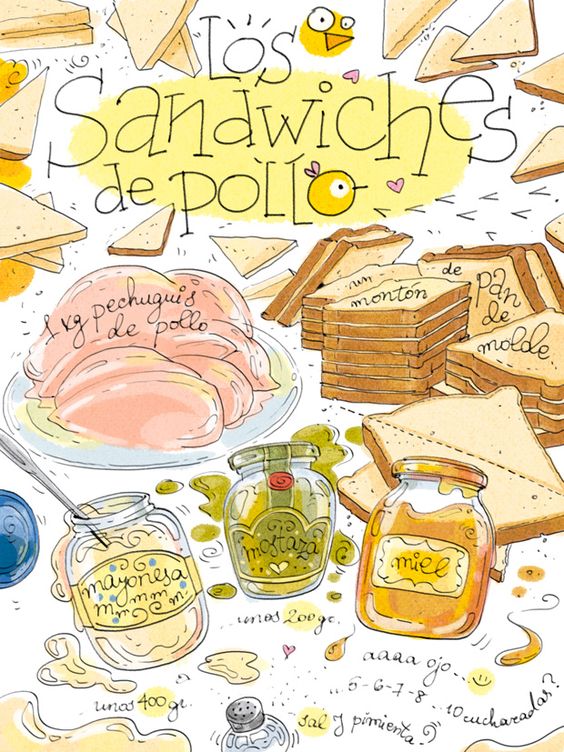 Los
Sandwiches
de pollo
1 kg pechuguis
de pollo
un
montón
de
pan
de
molde
mayonesa
mmmmmm
mostaza
miel
unos 200gr.
aaaa ojo...
5-6-7-8...10 cucharadas?
unos 400gr.
sal y pimienta